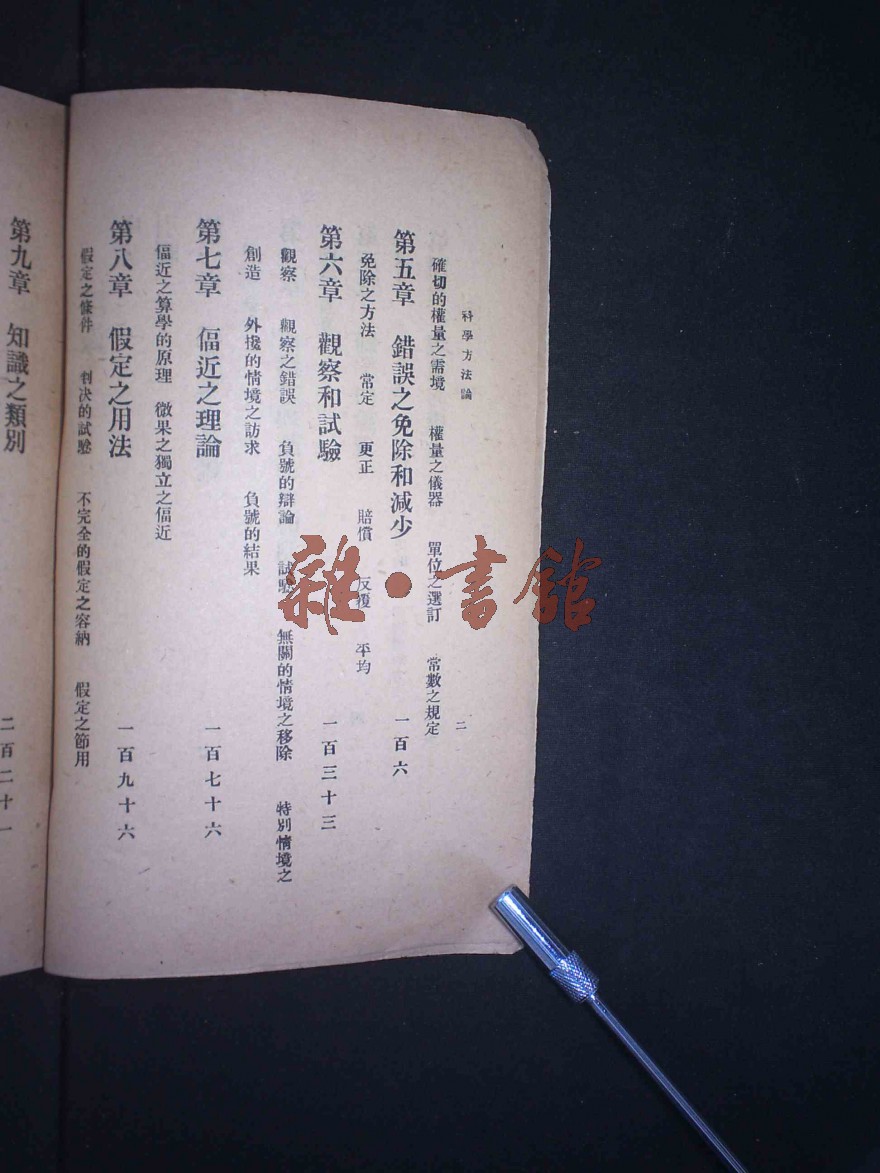 科學方法論 二
確切的權量之需境 權量之儀器 單位之選訂 常數之規定
第五章 錯誤之免除和減少 一百六
免除之方法 常定 更正 賠償 反覆 平均
第六章 觀察和試驗 一百三十三
觀察 觀察之錯誤 負號的辯論 試驗 無關的情境之移除 特別情境之
創造 外擾的情境之訪求 負號的結果
第七章 偪近之理論 一百七十六
偪近之算學的原理 微果之獨立之偪近
第八章 假定之用法 一百九十六
假定之條件 判決的試驗 不完全的假定之容納 假定之節用
第九章 知識之類別 二百二十一
雜·書館